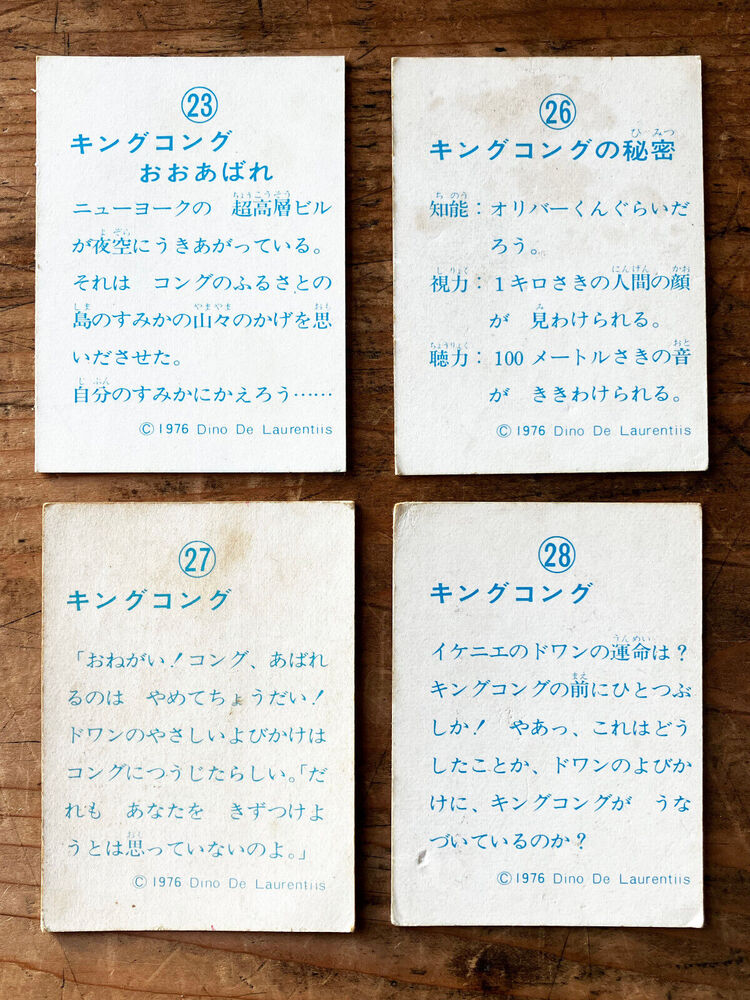 23
キングコング
おおあばれ
ニューヨークの 超高層ビル
が夜空にうきあがっている。
それは コングのふるさとの
島のすみかの山々のかげを思
いださせた。
自分のすみかにかえろう……
© 1976 Dino De Laurentiis
26
キングコングの秘密
知能：オリバーくんぐらいだ
ろう。
視力：1キロさきの人間の顔
が 見わけられる。
聴力：100メートルさきの音
が ききわけられる。
© 1976 Dino De Laurentiis
27
キングコング
「おねがい！コング、あばれ
るのは やめてちょうだい！
ドワンのやさしいよびかけは
コングにつうじたらしい。「だ
れも あなたを きずつけよ
うとは思っていないのよ。」
© 1976 Dino De Laurentiis
28
キングコング
イケニエのドワンの運命は？
キングコングの前にひとつぶ
しか！ やあっ、これはどう
したことか、ドワンのよびか
けに、キングコングが うな
づいているのか？
© 1976 Dino De Laurentiis